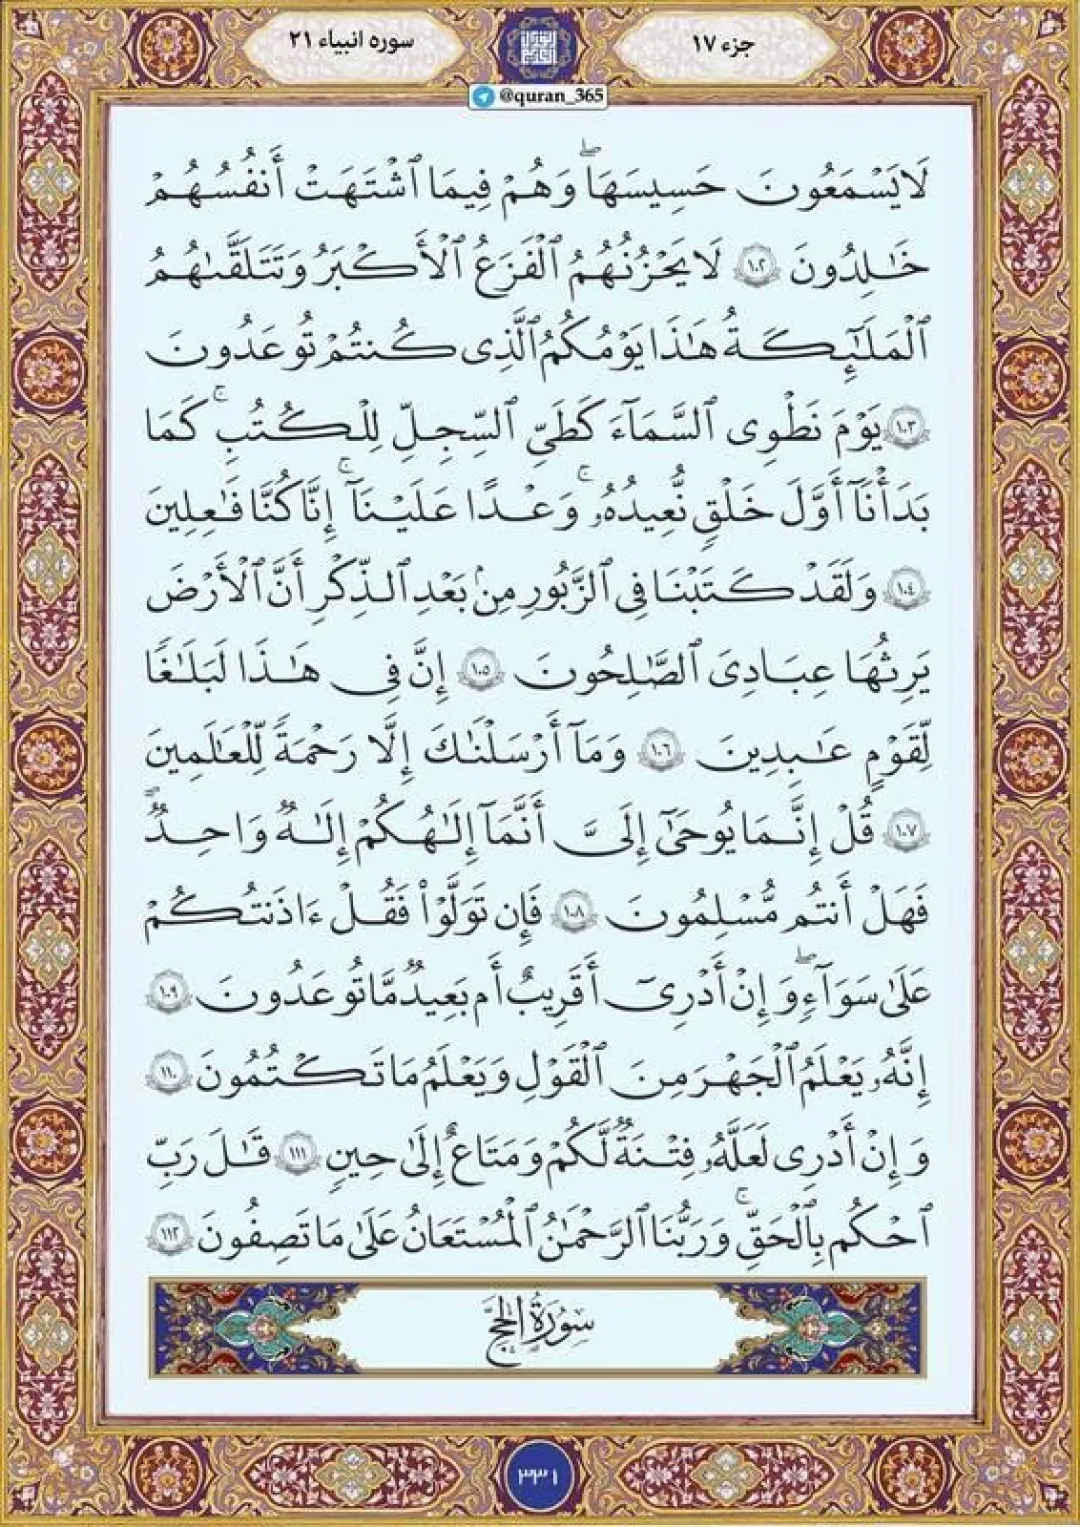 جزء ۱۷
سوره انبیاء ۲۱
@quran_365
لَا يَسْمَعُونَ حَسِيسَهَا ۖ وَهُمْ فِيمَا ٱشْتَهَتْ أَنفُسُهُمْ
خَـٰلِدُونَ ١٠٢ لَا يَحْزُنُهُمُ ٱلْفَزَعُ ٱلْأَكْبَرُ وَتَتَلَقَّىٰهُمُ
ٱلْمَلَـٰٓئِكَةُ هَـٰذَا يَوْمُكُمُ ٱلَّذِى كُنتُمْ تُوعَدُونَ
١٠٣ يَوْمَ نَطْوِى ٱلسَّمَآءَ كَطَىِّ ٱلسِّجِلِّ لِلْكُتُبِ ۚ كَمَا
بَدَأْنَآ أَوَّلَ خَلْقٍ نُّعِيدُهُۥ ۚ وَعْدًا عَلَيْنَآ ۚ إِنَّا كُنَّا فَـٰعِلِينَ
١٠٤ وَلَقَدْ كَتَبْنَا فِى ٱلزَّبُورِ مِنۢ بَعْدِ ٱلذِّكْرِ أَنَّ ٱلْأَرْضَ
يَرِثُهَا عِبَادِىَ ٱلصَّـٰلِحُونَ ١٠٥ إِنَّ فِى هَـٰذَا لَبَلَـٰغًا
لِّقَوْمٍ عَـٰبِدِينَ ١٠٦ وَمَآ أَرْسَلْنَـٰكَ إِلَّا رَحْمَةً لِّلْعَـٰلَمِينَ
١٠٧ قُلْ إِنَّمَا يُوحَىٰٓ إِلَىَّ أَنَّمَآ إِلَـٰهُكُمْ إِلَـٰهٌ وَٰحِدٌ ۖ
فَهَلْ أَنتُم مُّسْلِمُونَ ١٠٨ فَإِن تَوَلَّوْا۟ فَقُلْ ءَاذَنتُكُمْ
عَلَىٰ سَوَآءٍ ۖ وَإِنْ أَدْرِىٓ أَقَرِيبٌ أَم بَعِيدٌ مَّا تُوعَدُونَ ١٠٩
إِنَّهُۥ يَعْلَمُ ٱلْجَهْرَ مِنَ ٱلْقَوْلِ وَيَعْلَمُ مَا تَكْتُمُونَ ١١٠
وَإِنْ أَدْرِى لَعَلَّهُۥ فِتْنَةٌ لَّكُمْ وَمَتَـٰعٌ إِلَىٰ حِينٍ ١١١ قَـٰلَ رَبِّ
ٱحْكُم بِٱلْحَقِّ ۗ وَرَبُّنَا ٱلرَّحْمَـٰنُ ٱلْمُسْتَعَانُ عَلَىٰ مَا تَصِفُونَ ١١٢
سُورَةُ الحَجِّ
٣٣١